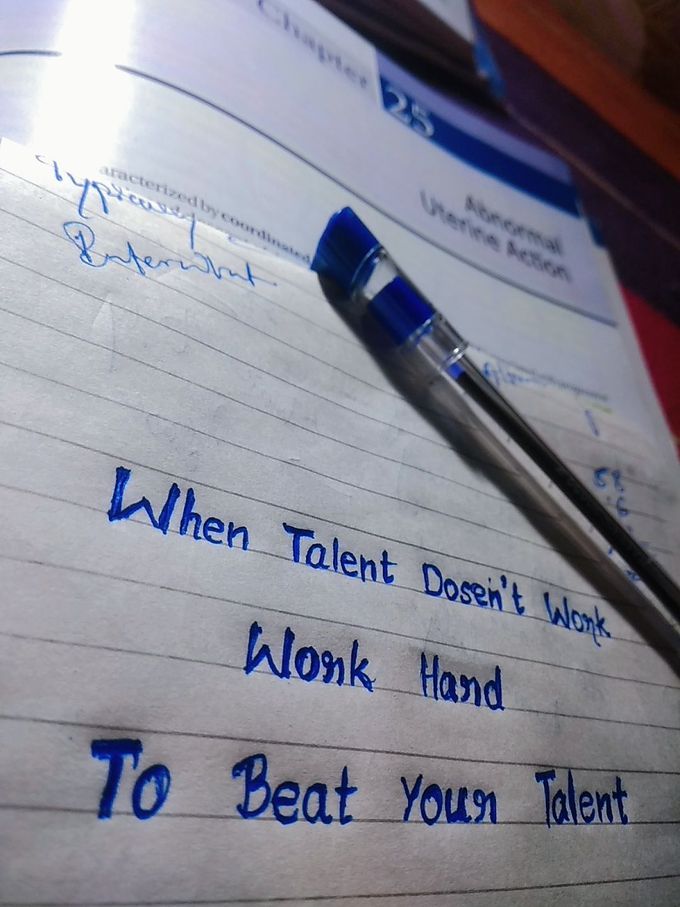 Chapter 25
Abnormal
Uterine Action
aracterized by coordinated
Typically
When Talent Dosen't Work
Work Hard
To Beat Your Talent